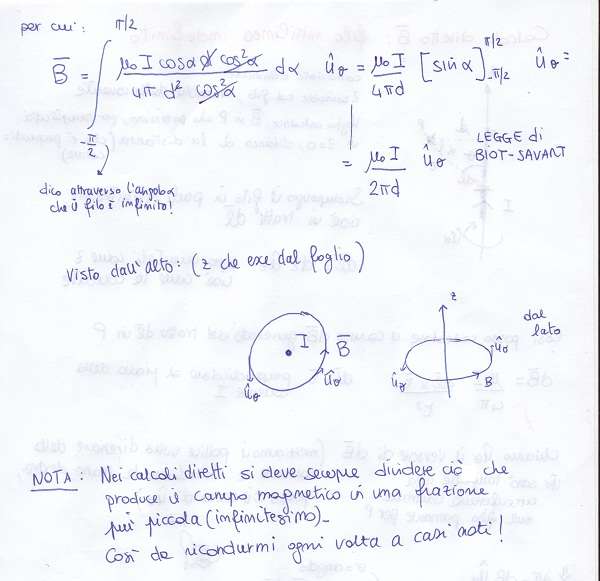 per cui :
B̅ = ∫_{-π/2}^{π/2} μ₀ I cosα d cos²α / 4π d² cos²α dα û_θ = μ₀ I / 4πd [sin α]_{-π/2}^{π/2} û_θ =
= μ₀ I / 2πd û_θ LEGGE di BIOT-SAVART
dico attraverso l'angolo α
che il filo è infinito!
Visto dall'alto : (z che esce dal foglio)
I B̅ û_θ û_θ
z dal lato û_θ û_θ B
NOTA : Nei calcoli diretti si deve sempre dividere ciò che
produce il campo magnetico in una frazione
più piccola (infinitesimo)_
Così da ricondurmi ogni volta a casi noti !